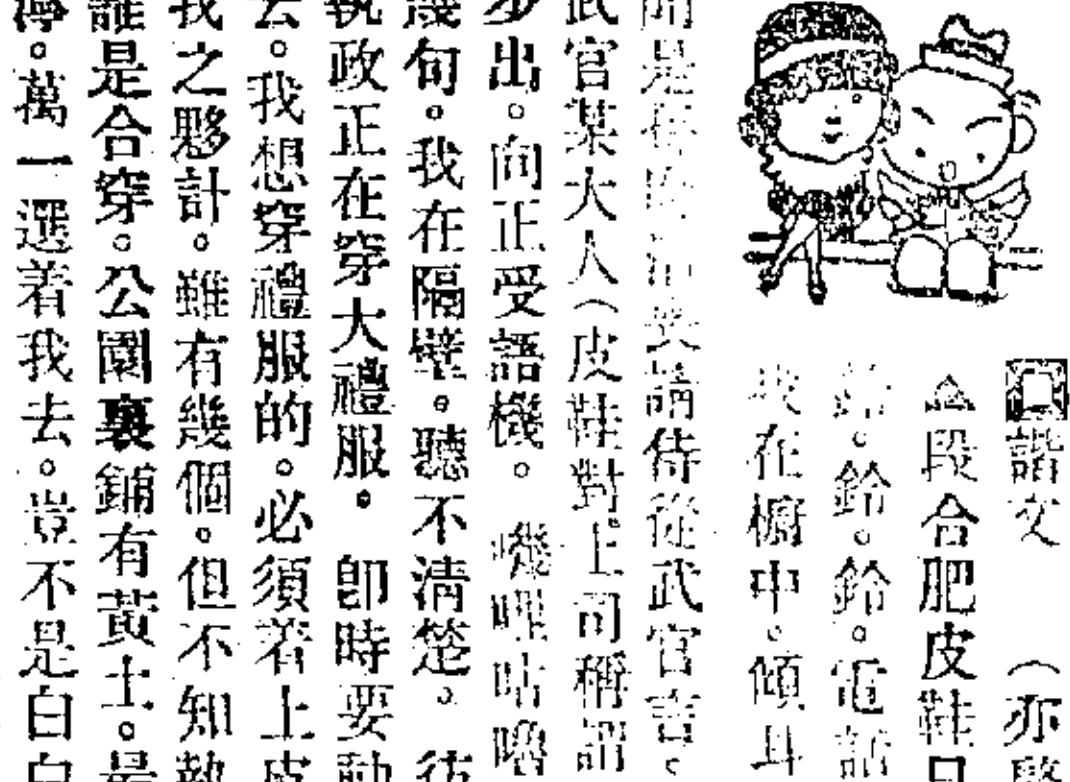 諧文 (亦
段合肥皮鞋
鈴。鈴。鈴。電話
我在櫥中。傾耳
請侍從武官言。
武官某大人(皮鞋對上司稱謂
步出。向正受語機。 嘰哩咕嚕
幾句。我在隔壁。聽不清楚。
執政正在穿大禮服。 卽時要動
去。我想穿禮服的。必須着上皮
我之夥計。雖有幾個。但不知執
誰是合穿。公園裏鋪有黃土。是
濘。萬一選着我去。豈不是白白